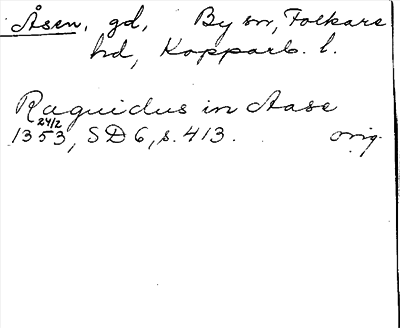 Åsen, gd, By sn, Folkare
hd, Kopparb. l.
Raguidus in Aase
24/2
1353, SD 6, s. 413. orig.